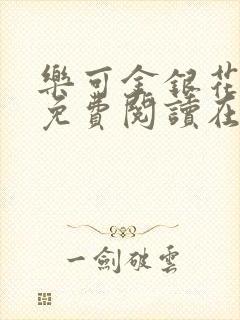 樂可金銀花
免費閱讀在
一劍破雲